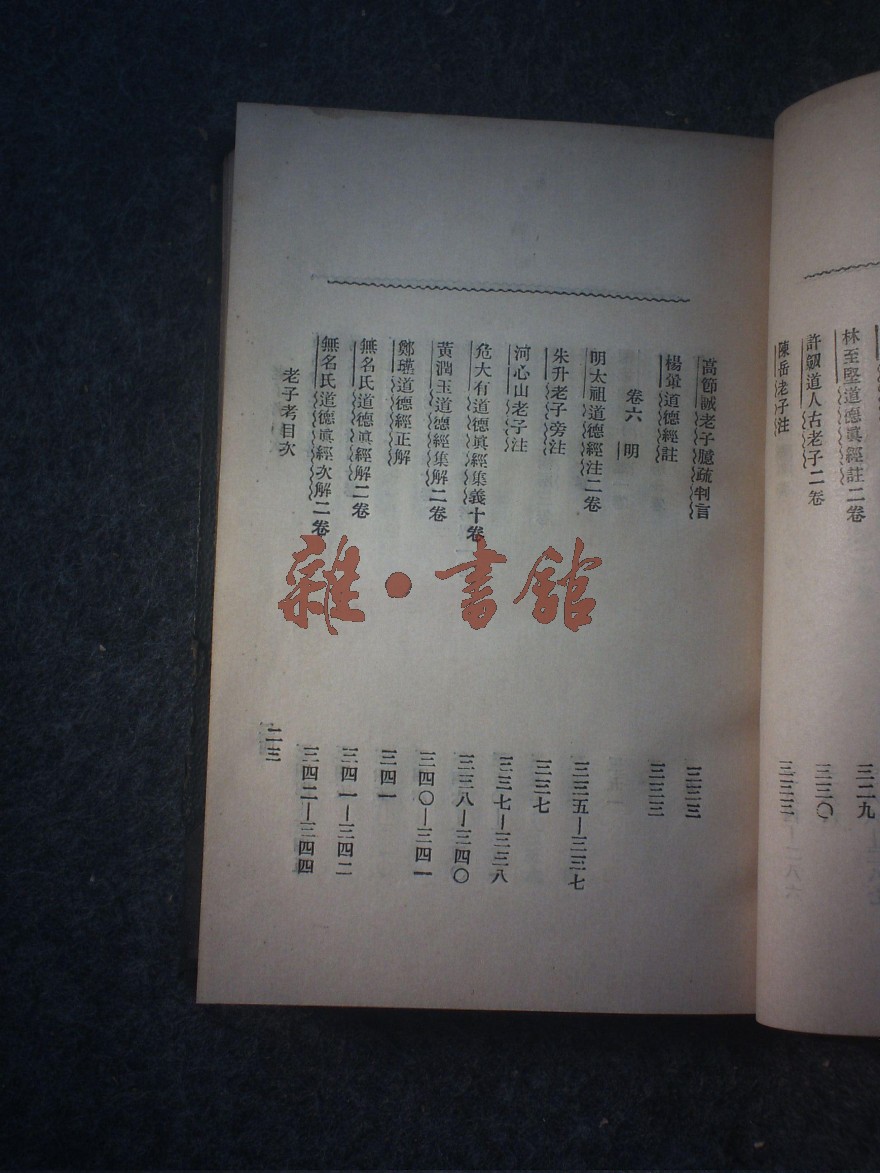 林至堅道德眞經註二卷 三二九
許劔道人古老子二卷 三三〇
陳岳老子注 三三三
高節誠老子臆疏判言 三三三
楊暈道德經註 三三三
卷六 明
明太祖道德經注二卷 三三五—三三七
朱升老子旁注 三三七
河心山老子注 三三七—三三八
危大有道德眞經集義十卷 三三八—三四〇
黃潤玉道德經集解二卷 三四〇—三四一
鄭瓘道德經正解 三四一
無名氏道德眞經解二卷 三四一—三四二
無名氏道德眞經次解二卷 三四二—三四四
老子考目次 二三
雜·書館